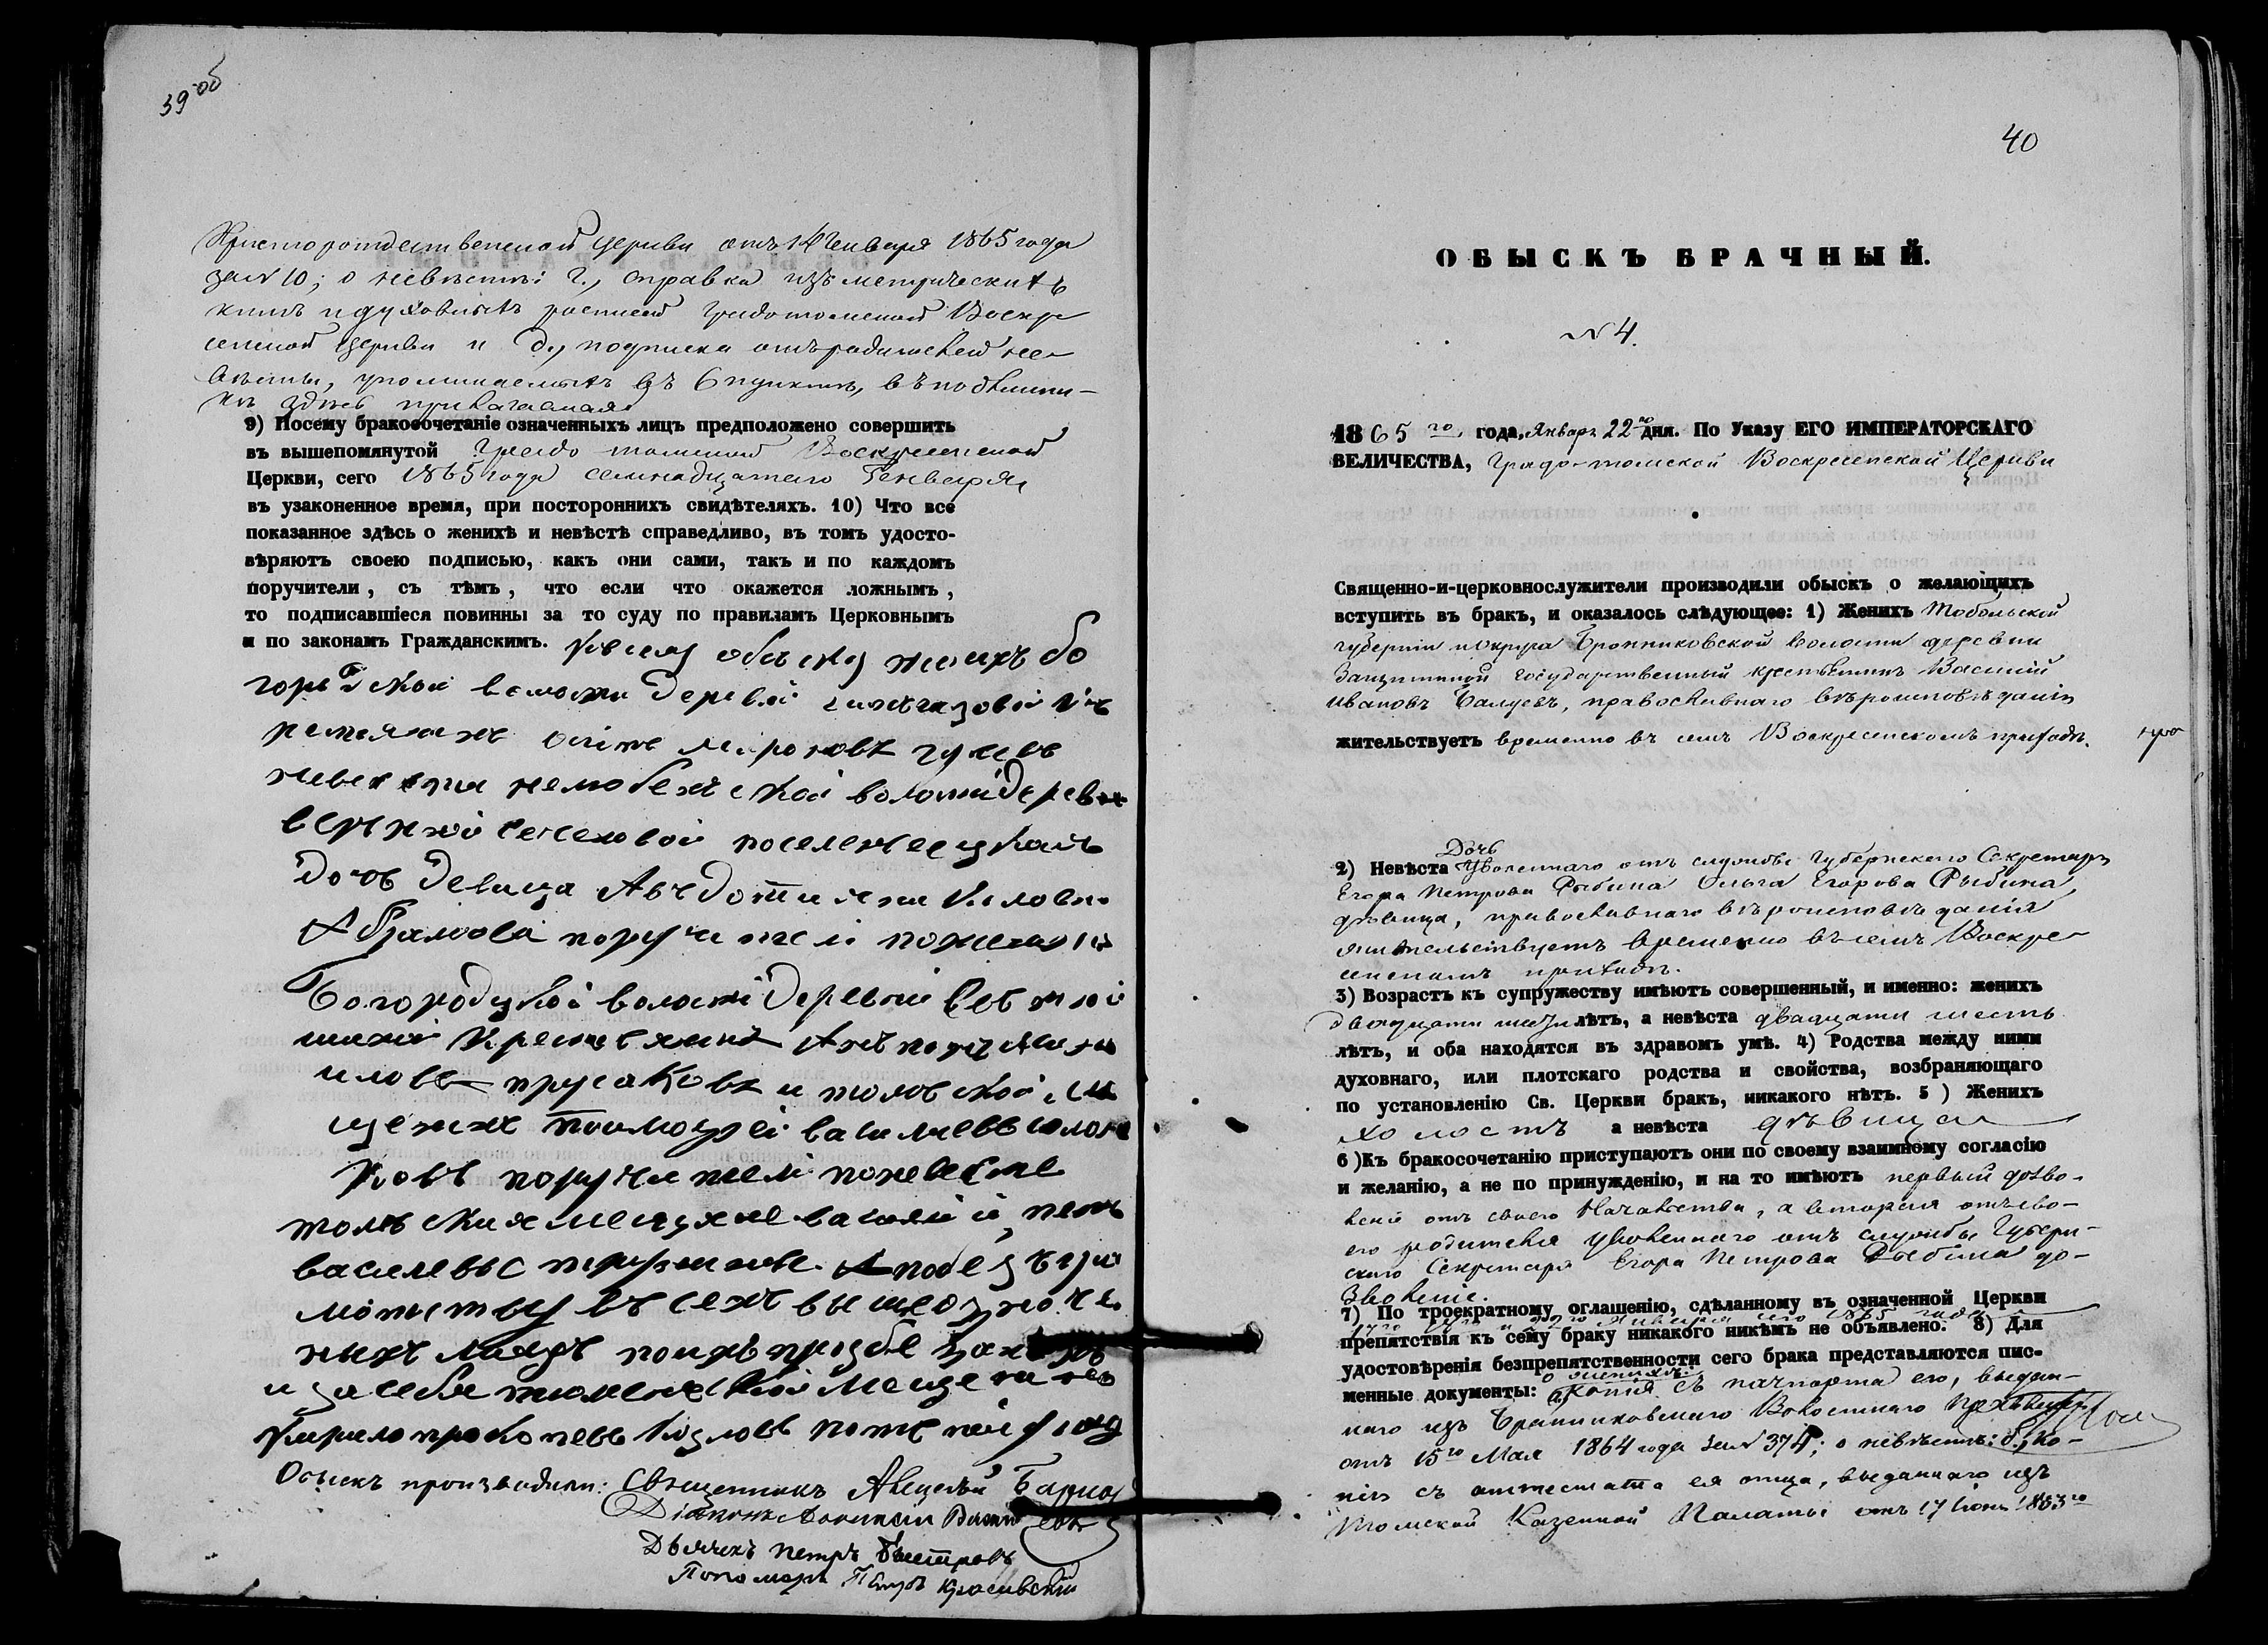 39 об
Христорождественской церкви отъ 14 Генваря 1865 года
за N 10; о невѣстѣ: г., справка изъ метрическихъ
книгъ и духовныхъ росписей градотомской Воскре
сенской Церкви и д., подписка отъ родителей не-
вѣсты, упоминаемыхъ въ 6 пунктѣ, въ подлинни-
кѣ здѣсь прилагаемая
9) Посему бракосочетаніе означенныхъ лицъ предположено совершить
въ вышепомянутой Градо томской Воскресенской
Церкви, сего 1865 года семнадцатаго Генваря,
въ узаконенное время, при постороннихъ свидѣтеляхъ. 10) Что все
показанное здѣсь о женихѣ и невѣстѣ справедливо, въ томъ удосто-
вѣряютъ своею подписью, какъ они сами, такъ и по каждомъ
поручители, съ тѣмъ, что если что окажется ложнымъ,
то подписавшіеся повинны за то суду по правиламъ Церковнымъ
и по законамъ Гражданскимъ. К сему обыску женихъ бо
городской волости деревни
невеста нелюбенской волости деревни
верхней сеченовой поселенческая
дочь девица Авдотия
Абрамова поручители по женихе
Богородской волости деревни
крестьянинъ
прусаковъ и томской ме
щенинъ Тимофей васильевъ
ковъ поручители по невесте
томския мещане василий и петръ
васильевы а по безгра
мотству всехъ вышеозначе
ныхъ лицъ по ихъ прозбе
и за себя тюменской мещенинъ
кирило прокопевъ козловъ
Обыскъ производили: Священникъ Алексѣй
Діаконъ
Дьячекъ Петръ Быстровъ
Пономарь Петръ Красивскій
40
ОБЫСКЪ БРАЧНЫЙ.
N 4.
1865го года, Январь 22го дня. По Указу ЕГО ИМПЕРАТОРСКАГО
ВЕЛИЧЕСТВА, Градо-томской Воскресенской Церкви
Священно-и-церковнослужители производили обыскъ о желающихъ
вступить въ бракъ, и оказалось слѣдующее: 1) Женихъ Тобольской
губерніи и округа Бронниковской волости деревни
государственный крестьянинъ Василій
Ивановъ Балуевъ, православнаго вѣроисповѣданія
жительствуетъ временно въ семъ Воскресенскомъ приходѣ.
Дочь
2) Невѣста Уволеннаго отъ службы Губернскаго Секретаря
Егора Петрова Рыбина Ольга Егорова Рыбина,
дѣвица, православнаго вѣроисповѣданія
жительствуетъ временно въ семъ Воскре-
сенскомъ приходѣ.
3) Возрастъ къ супружеству имѣютъ совершенный, и именно: женихъ
двадцати лѣтъ, а невѣста двадцати шесть
лѣтъ, и оба находятся въ здравомъ умѣ. 4) Родства между ними
духовнаго, или плотскаго родства и свойства, возбраняющаго
по установленію Св. Церкви бракъ, никакого нѣтъ. 5) Женихъ
холостъ а невѣста дѣвица
6) Къ бракосочетанію приступаютъ они по своему взаимному согласію
и желанію, а не по принужденію, и на то имѣютъ первый дозво-
леніе отъ своего Начальства, а вторая отъ сво-
его родителя уволеннаго отъ службы Губерн-
скаго Секретаря Егора Петрова Рыбина до-
зволеніе.
7) По троекратному оглашенію, сдѣланному въ означенной Церкви
и 22го Января сего 1865 года
препятствія къ сему браку никакого никѣмъ не объявлено. 8) Для
удостовѣренія безпрепятственности сего брака представляются пис-
о женихѣ:
менные документы: а, копія съ пачпорта его, выдан-
наго изъ Бронниковскаго Волостнаго Правленія
отъ 15го Мая 1864 года за N 374; о невѣстѣ: б., ко-
пія съ аттестата ея отца, выданнаго изъ
Томской Казенной Палаты отъ 17 Іюня 1853го